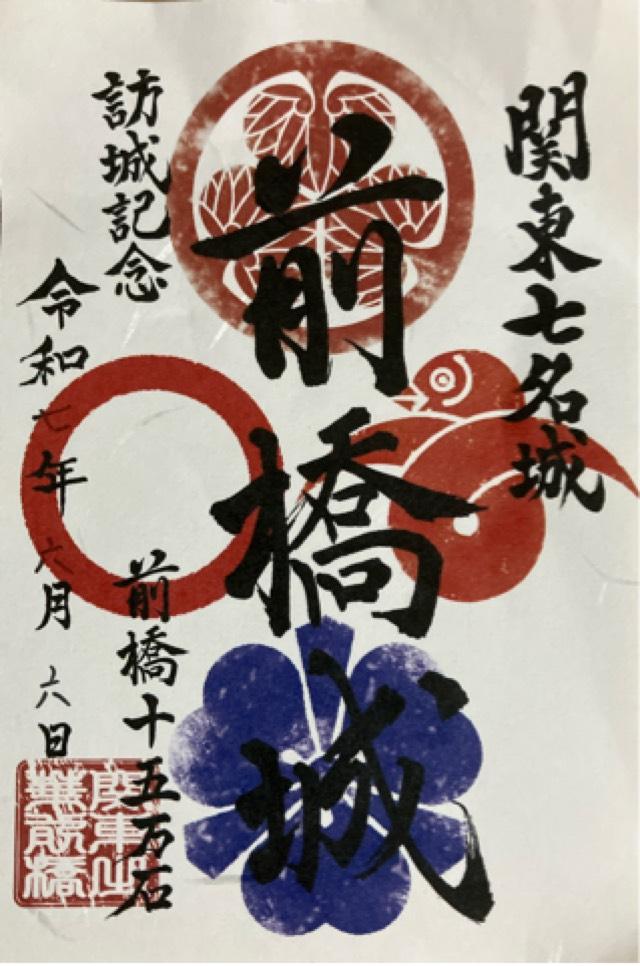 関東七名城
前橋城
訪城記念
前橋十五万石
令和七年六月六日
関東之
華前橋